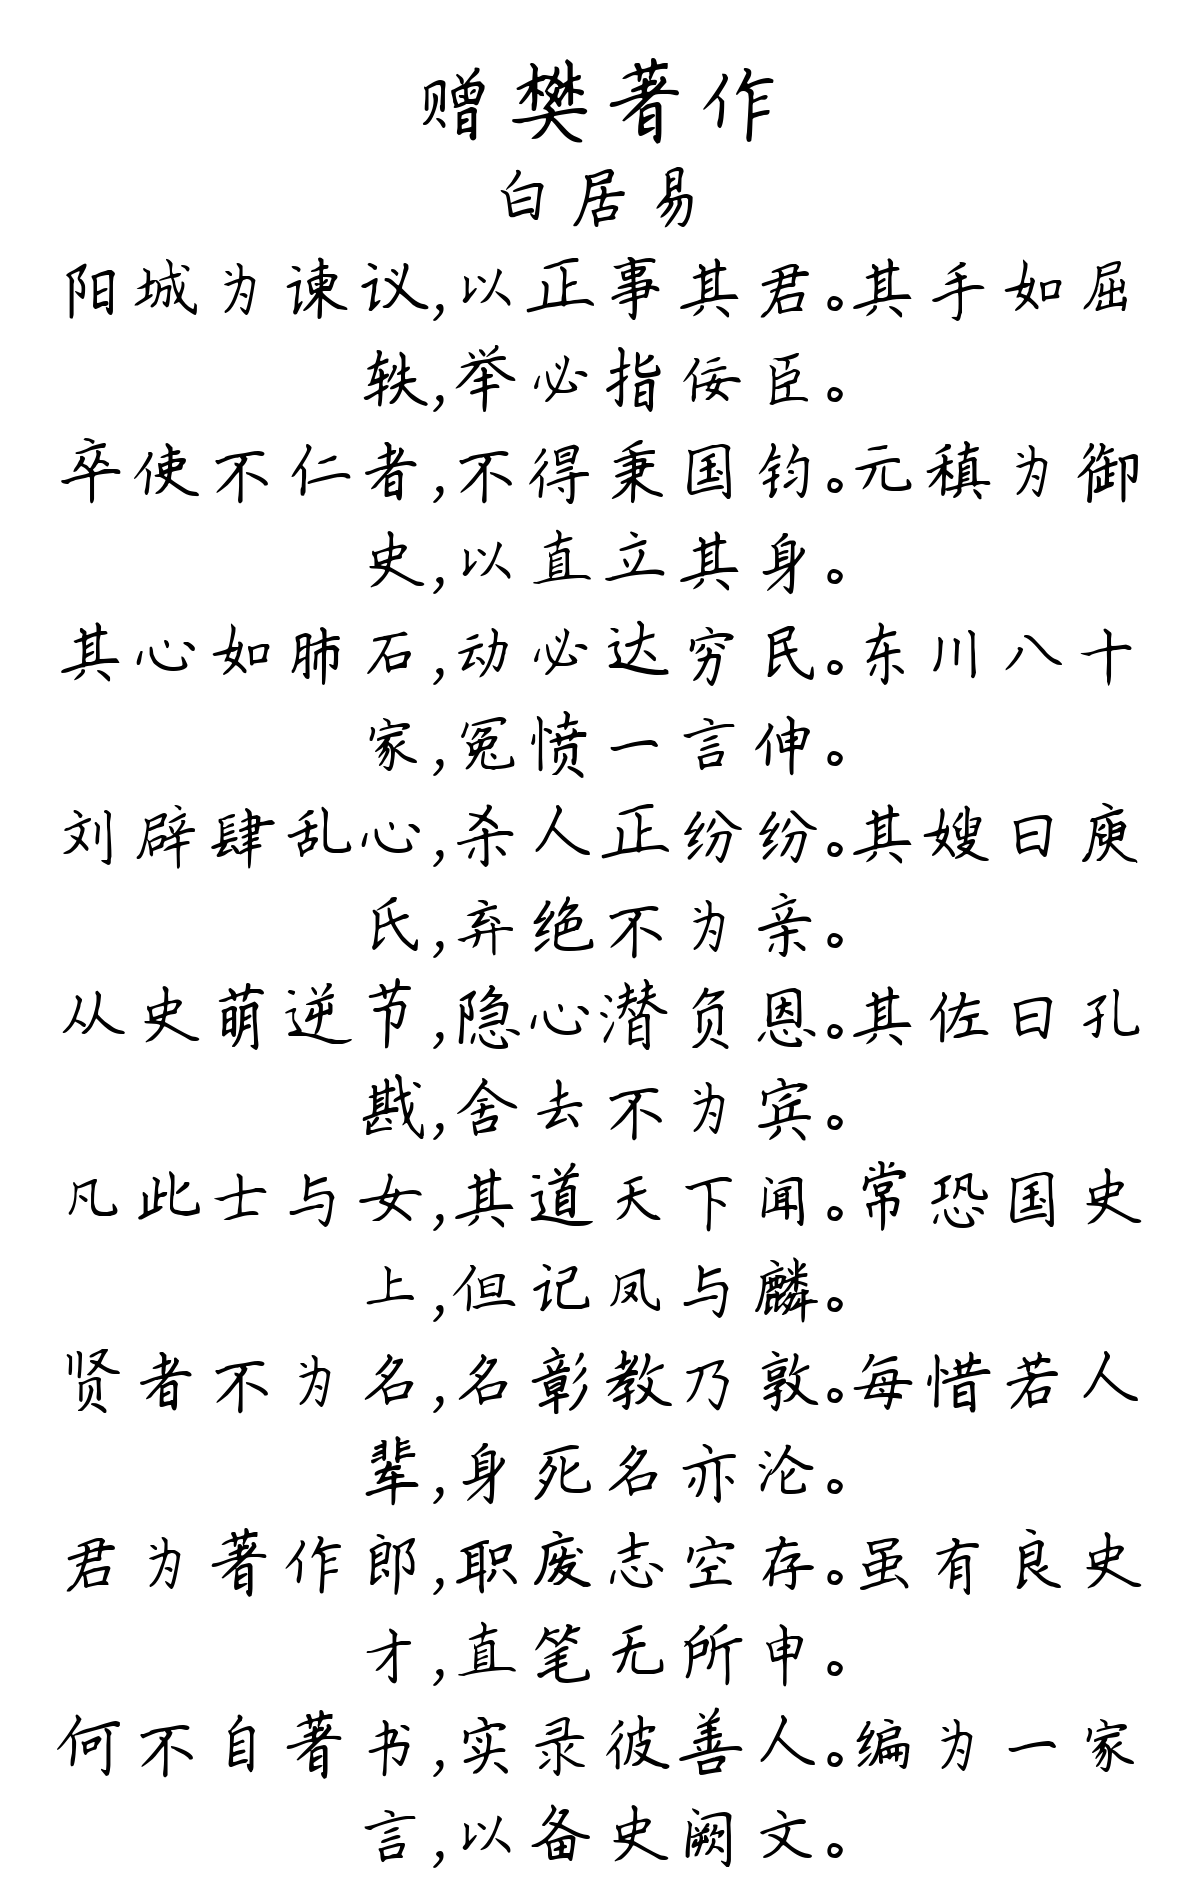 赠樊著作
白居易
阳城为谏议,以正事其君。其手如屈
轶,举必指佞臣。
卒使不仁者,不得秉国钧。元稹为御
史,以直立其身。
其心如肺石,动必达穷民。东川八十
家,冤愤一言伸。
刘辟肆乱心,杀人正纷纷。其嫂曰庾
氏,弃绝不为亲。
从史萌逆节,隐心潜负恩。其佐曰孔
戡,舍去不为宾。
凡此士与女,其道天下闻。常恐国史
上,但记凤与麟。
贤者不为名,名彰教乃敦。每惜若人
辈,身死名亦沦。
君为著作郎,职废志空存。虽有良史
才,直笔无所申。
何不自著书,实录彼善人。编为一家
言,以备史阙文。